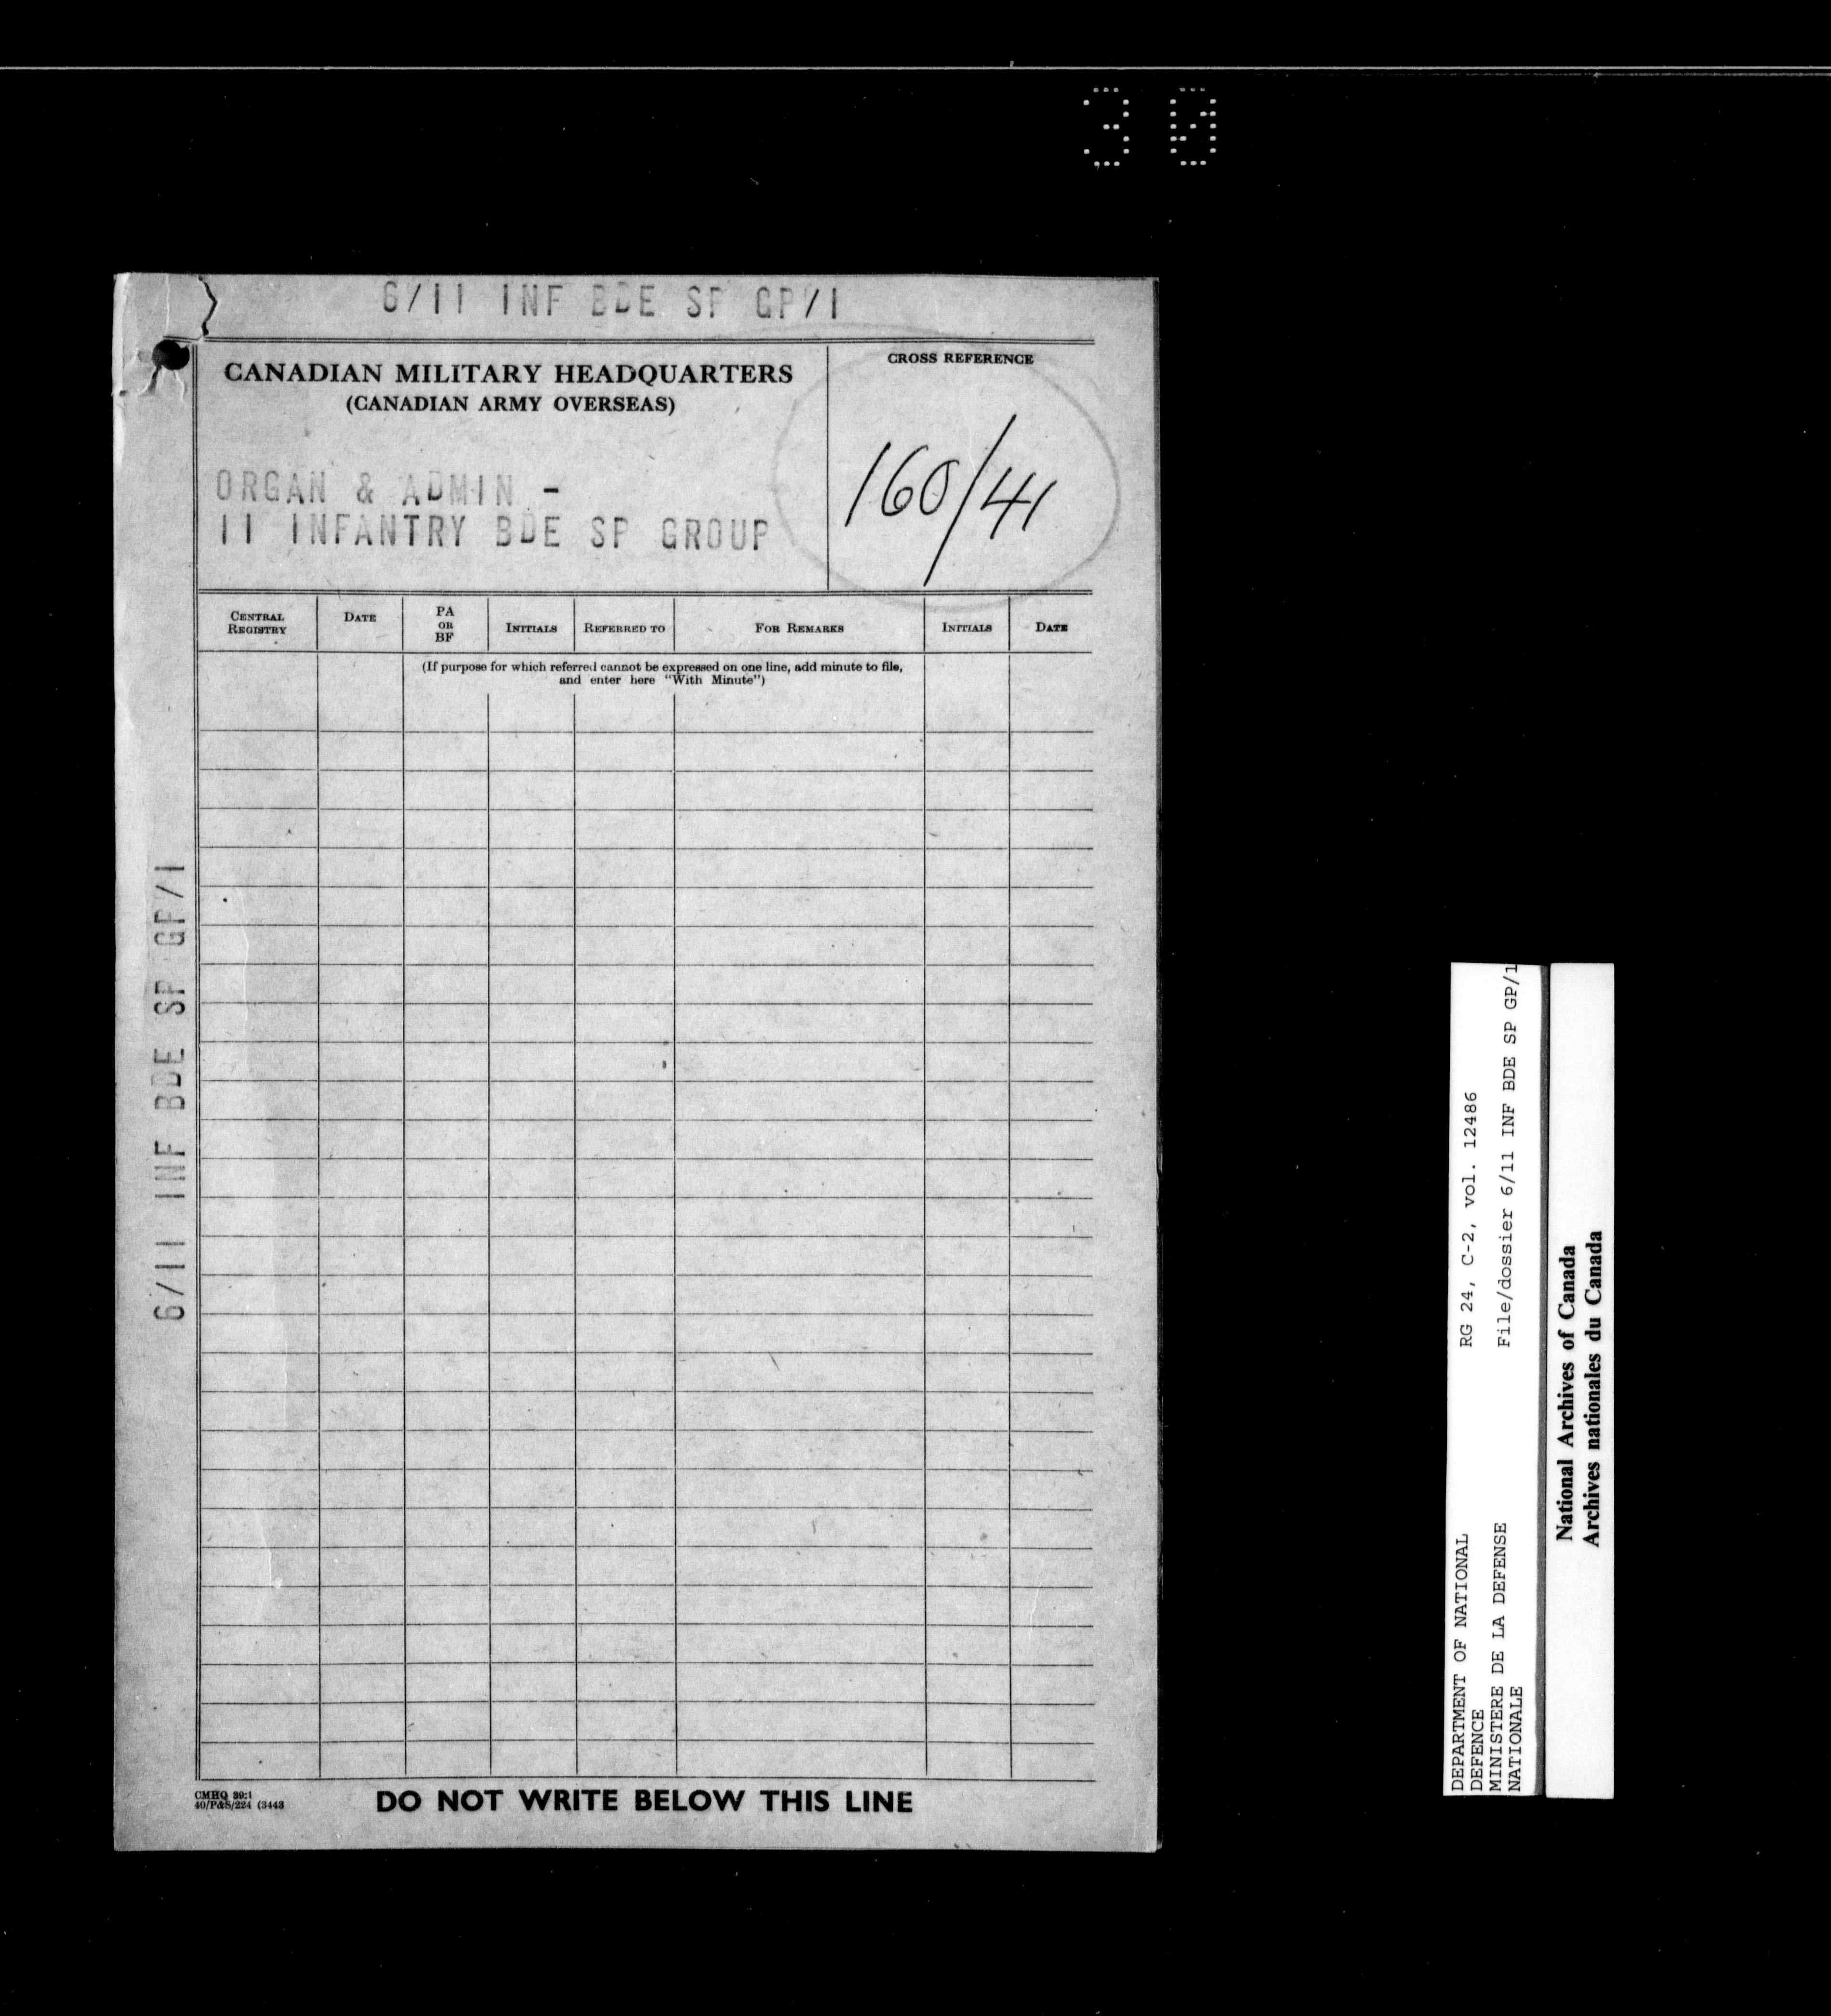 30
6/11 INF BDE SP GP/1
CANADIAN MILITARY HEADQUARTERS
(CANADIAN ARMY OVERSEAS)
CROSS REFERENCE
160/41
ORGAN & ADMIN -
11 INFANTRY BDE SP GROUP
CENTRAL REGISTRY
DATE
PA OR BF
INITIALS
REFERRED TO
FOR REMARKS
INITIALS
DATE
(If purpose for which referred cannot be expressed on one line, add minute to file,
and enter here "With Minute")
6/11 INF BDE SP GP/1
CMHQ 39:1
40/P&S/224 (3443
DO NOT WRITE BELOW THIS LINE
DEPARTMENT OF NATIONAL
DEFENCE
MINISTERE DE LA DEFENSE
NATIONALE
RG 24, C-2, vol. 12486
File/dossier 6/11 INF BDE SP GP/1
National Archives of Canada
Archives nationales du Canada